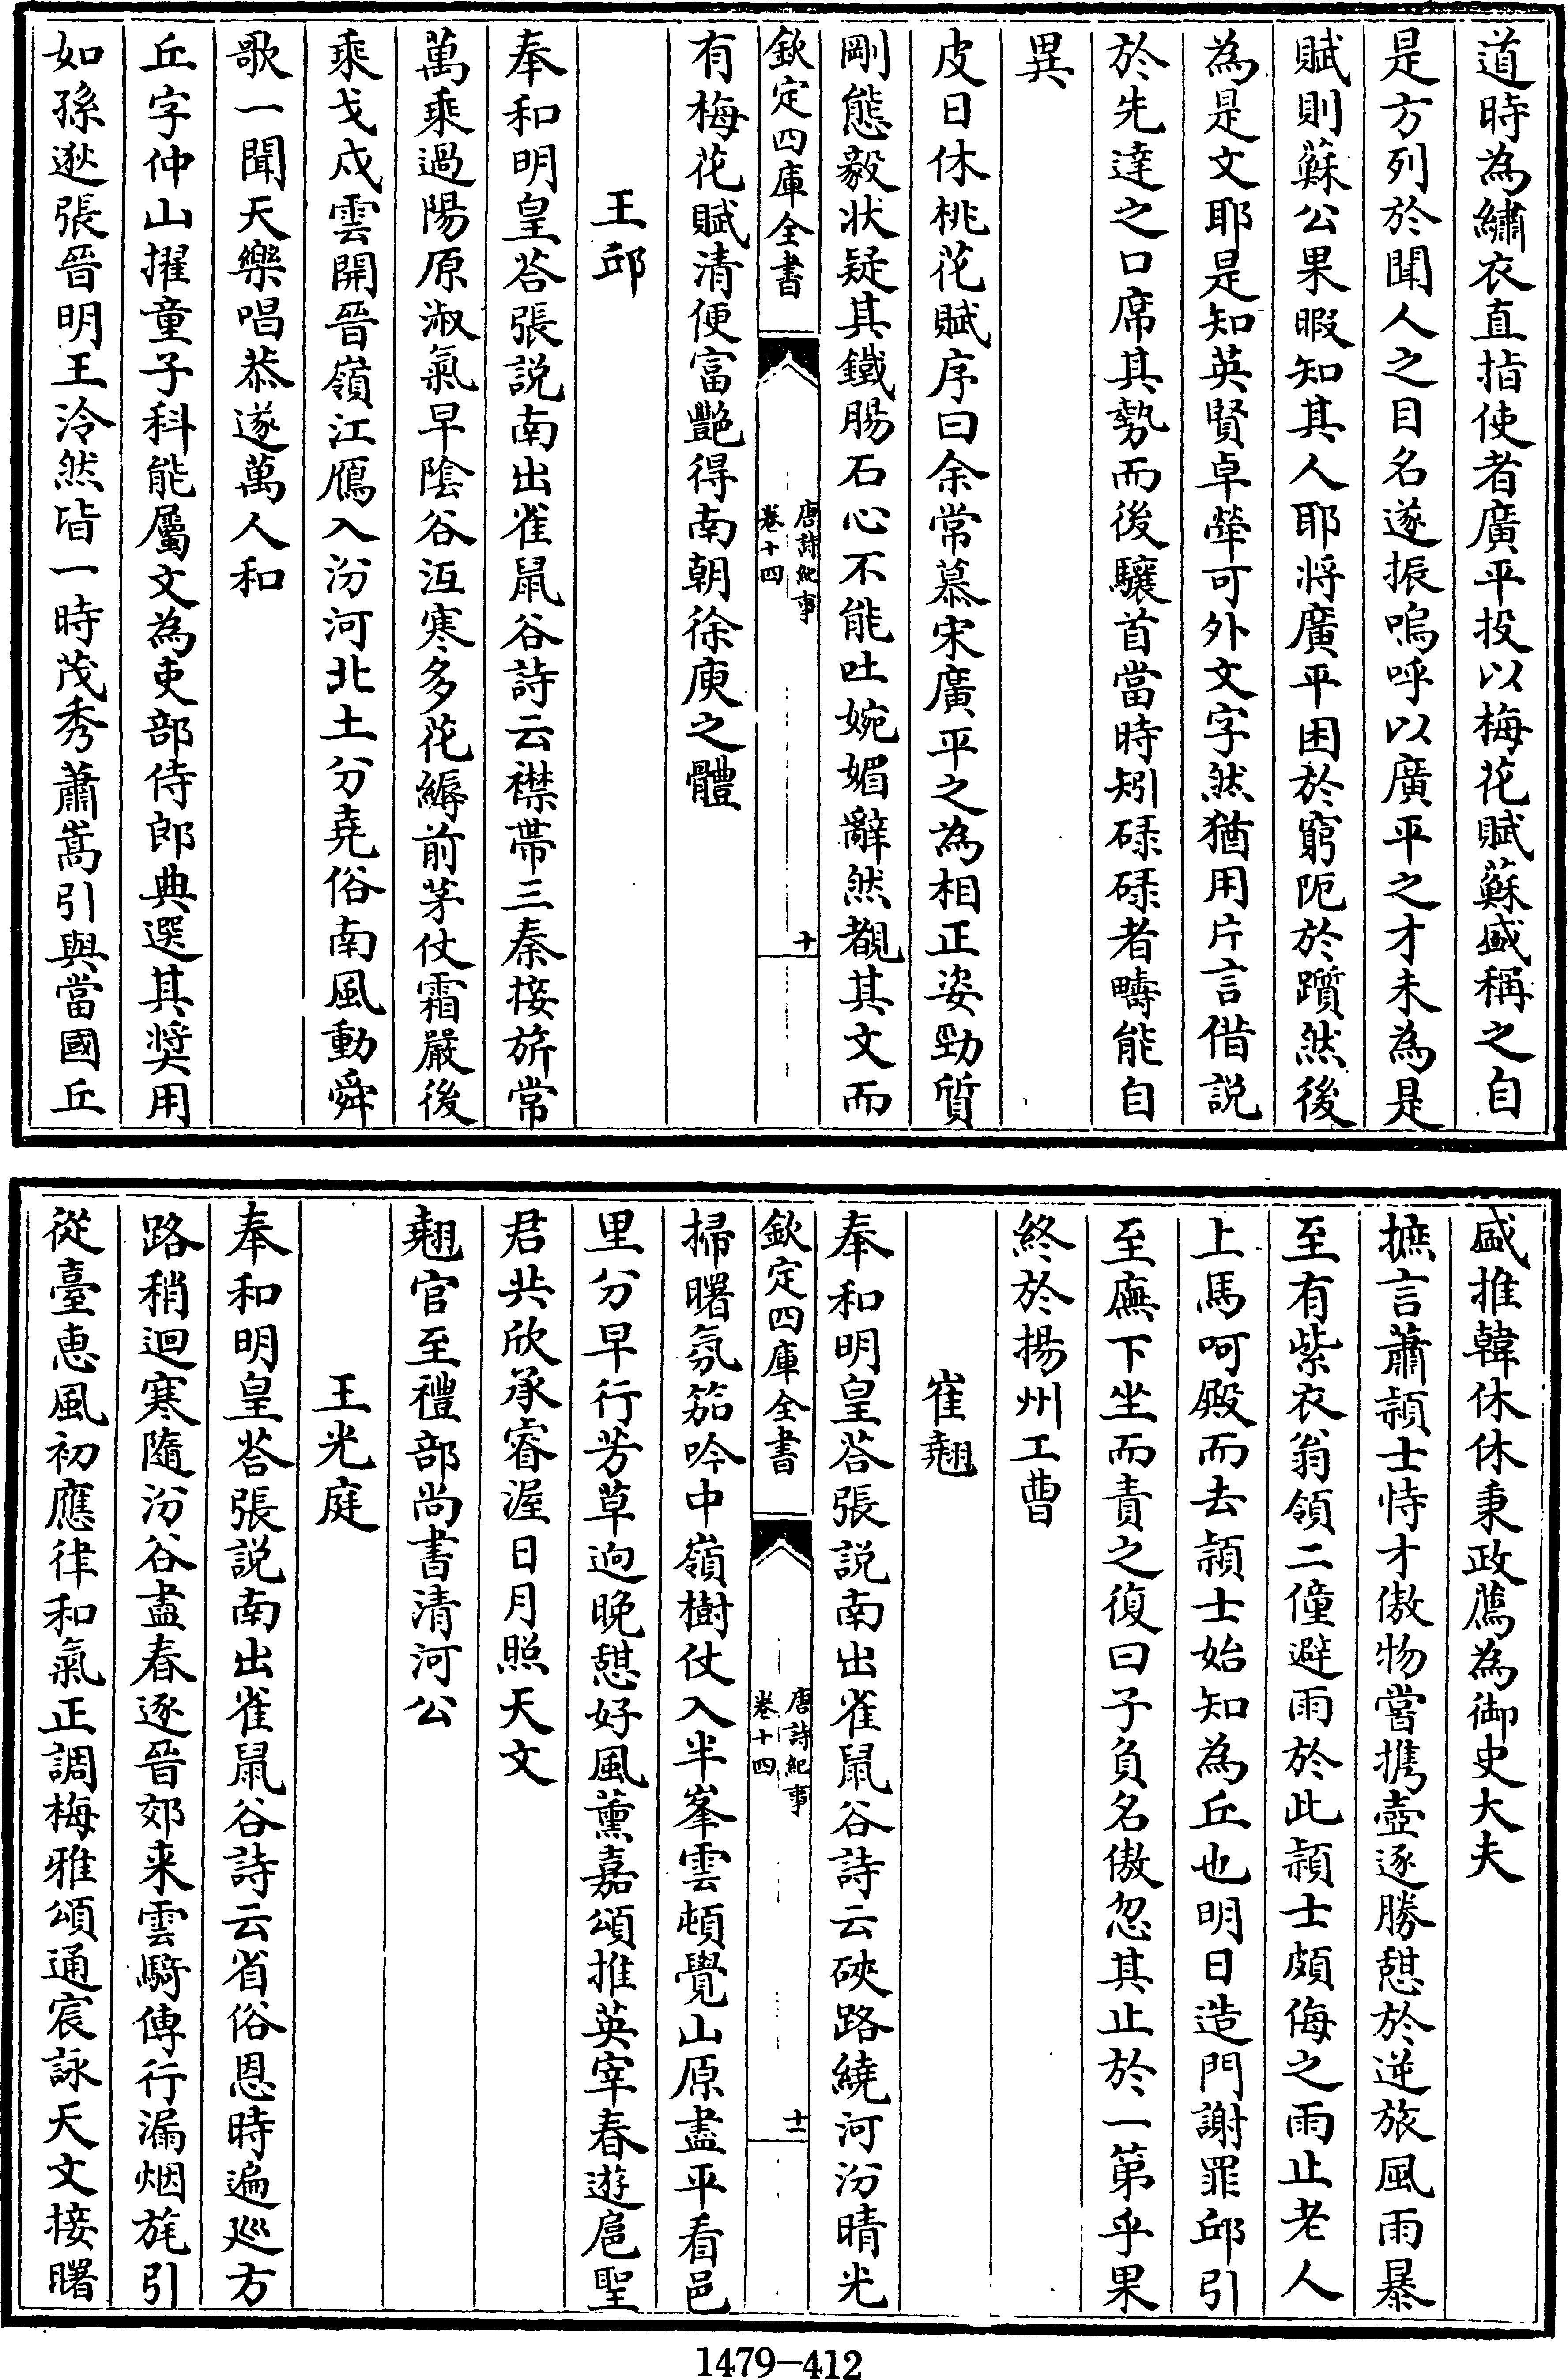 道時為繡衣直指使者廣平投以梅花賦蘇盛稱之自
是方列於聞人之目名遂振嗚呼以廣平之才未為是
賦則蘇公果暇知其人耶將廣平困於窮阨於躓然後
為是文耶是知英賢卓犖可外文字然猶用片言借説
於先達之口席其勢而後驤首當時矧碌碌者疇能自
異
皮日休桃花賦序曰余常慕宋廣平之為相正姿勁質
剛態毅状疑其鐵腸石心不能吐婉媚辭然覩其文而
欽定四庫全書
唐詩紀事
卷十四
十
有梅花賦清便富艷得南朝徐庾之體
王邱
奉和明皇荅張説南出雀鼠谷詩云襟帶三秦接旂常
萬乘過陽原淑氣早陰谷冱寒多花縟前茅仗霜嚴後
乘戈戍雲開晉嶺江鴈入汾河北土分堯俗南風動舜
歌一聞天樂唱恭遂萬人和
丘字仲山擢童子科能屬文為吏部侍郎典選其奬用
如孫逖張晉明王泠然皆一時茂秀蕭嵩引與當國丘
盛推韓休休秉政薦為御史大夫
摭言蕭頴士恃才傲物嘗攜壺逐勝憇於逆旅風雨暴
至有紫衣翁領二僮避雨於此頴士頗侮之雨止老人
上馬呵殿而去頴士始知為丘也明日造門謝罪邱引
至廡下坐而責之復曰子負名傲忽其止於一第乎果
終於揚州工曹
崔翹
奉和明皇荅張説南出雀鼠谷詩云硤路繞河汾晴光
欽定四庫全書
唐詩紀事
卷十四
十一
掃曙氛笳吟中嶺樹仗入半峯雲頓覺山原盡平看邑
里分早行芳草逈晚憇好風薰嘉頌推英宰春遊扈聖
君共欣承睿渥日月照天文
翹官至禮部尚書清河公
王光庭
奉和明皇荅張説南出雀鼠谷詩云省俗恩時遍廵方
路稍迴寒隨汾谷盡春逐晉郊来雲騎傳行漏烟旄引
從臺恵風初應律和氣正調梅雅頌通宸詠天文接曙
1479-412